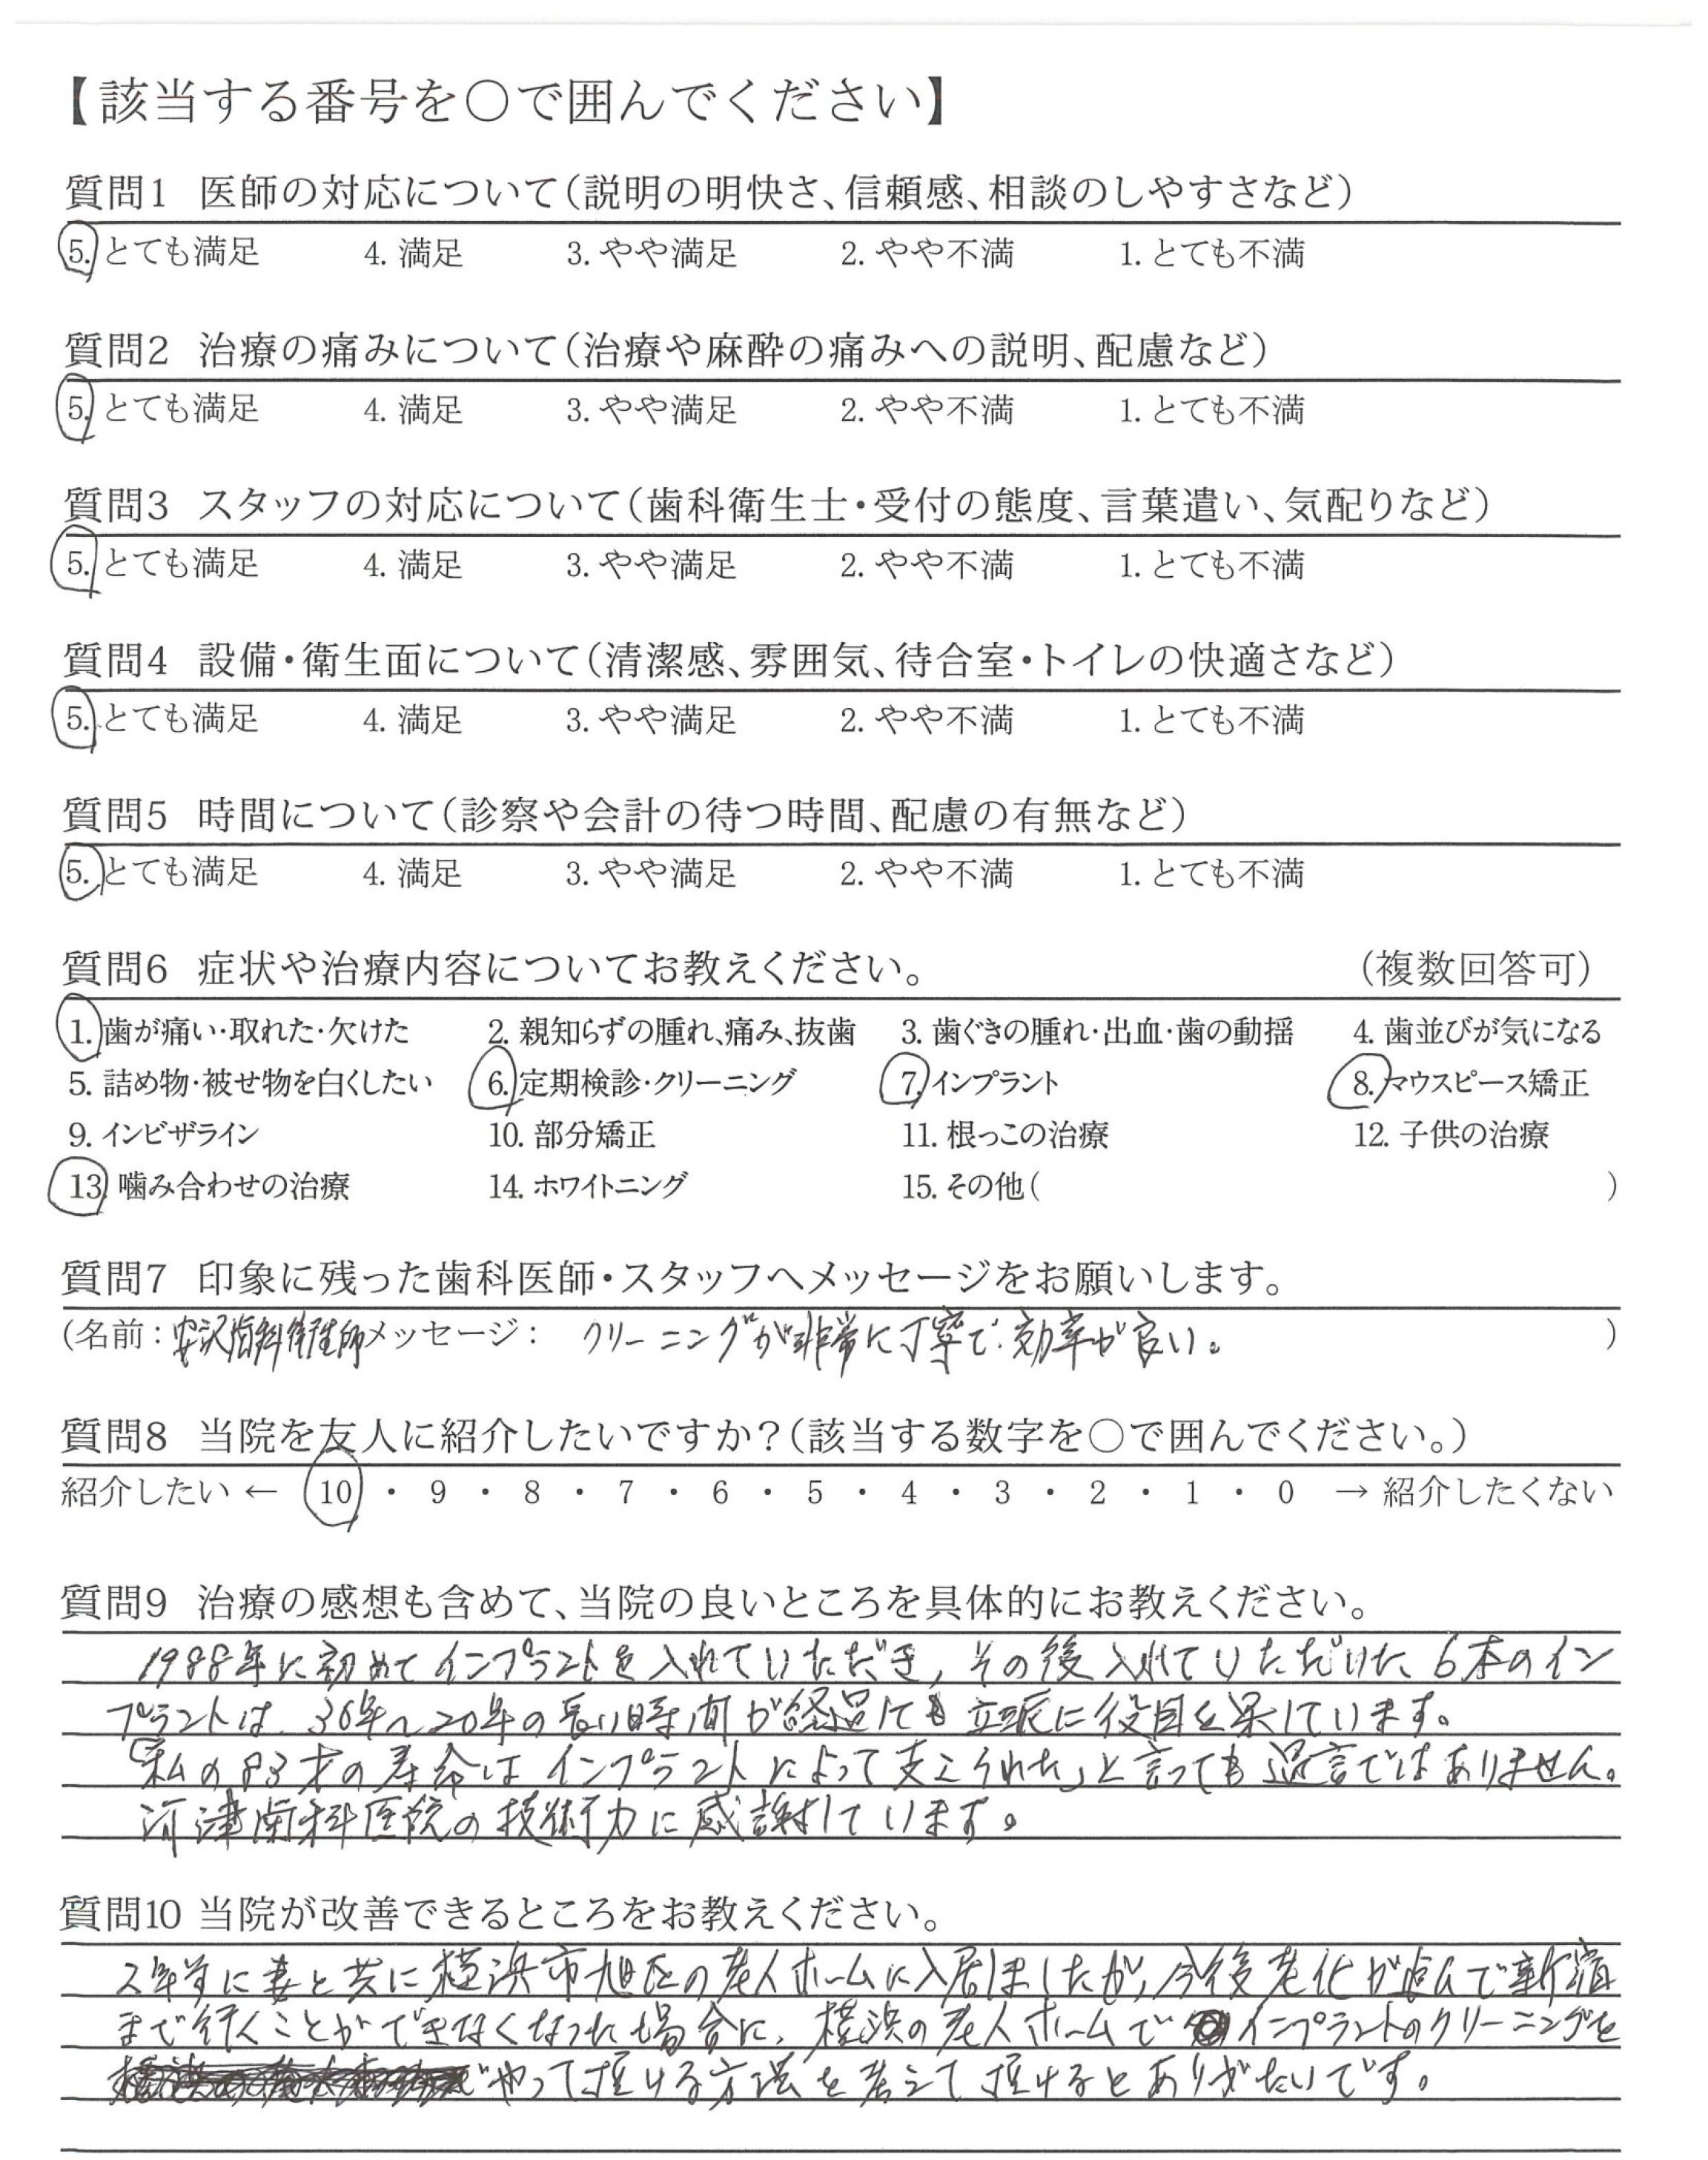 【該当する番号を○で囲んでください】
質問1 医師の対応について(説明の明快さ、信頼感、相談のしやすさなど)
5. とても満足 4. 満足 3. やや満足 2. やや不満 1. とても不満
質問2 治療の痛みについて(治療や麻酔の痛みへの説明、配慮など)
5. とても満足 4. 満足 3. やや満足 2. やや不満 1. とても不満
質問3 スタッフの対応について(歯科衛生士・受付の態度、言葉遣い、気配りなど)
5. とても満足 4. 満足 3. やや満足 2. やや不満 1. とても不満
質問4 設備・衛生面について(清潔感、雰囲気、待合室・トイレの快適さなど)
5. とても満足 4. 満足 3. やや満足 2. やや不満 1. とても不満
質問5 時間について(診察や会計の待つ時間、配慮の有無など)
5. とても満足 4. 満足 3. やや満足 2. やや不満 1. とても不満
質問6 症状や治療内容についてお教えください。 (複数回答可)
1. 歯が痛い・取れた・欠けた 2. 親知らずの腫れ、痛み、抜歯 3. 歯ぐきの腫れ・出血・歯の動揺 4. 歯並びが気になる
5. 詰め物・被せ物を白くしたい 6. 定期検診・クリーニング 7. インプラント 8. マウスピース矯正
9. インビザライン 10. 部分矯正 11. 根っこの治療 12. 子供の治療
13. 噛み合わせの治療 14. ホワイトニング 15. その他( )
質問7 印象に残った歯科医師・スタッフへメッセージをお願いします。
(名前:安沢歯科衛生師 メッセージ: クリーニングが非常に丁寧で、効率が良い。 )
質問8 当院を友人に紹介したいですか?(該当する数字を○で囲んでください。)
紹介したい ← 10 ・ 9 ・ 8 ・ 7 ・ 6 ・ 5 ・ 4 ・ 3 ・ 2 ・ 1 ・ 0 → 紹介したくない
質問9 治療の感想も含めて、当院の良いところを具体的にお教えください。
1988年に初めてインプラントを入れていただき、その後入れていただいた6本のイン
プラントは、36年〜20年の長い時間が経過しても立派に役目を果しています。
「私の83才の寿命はインプラントによって支えられた」と言っても過言ではありません。
河津歯科医院の技術力に感謝しています。
質問10 当院が改善できるところをお教えください。
2年半前に妻と共に横浜市旭区の老人ホームに入居しましたが、今後老化が進んで新宿
まで行くことができなくなった場合に、横浜の老人ホームでインプラントのクリーニングを
やって頂ける方法を考えて頂けるとありがたいです。